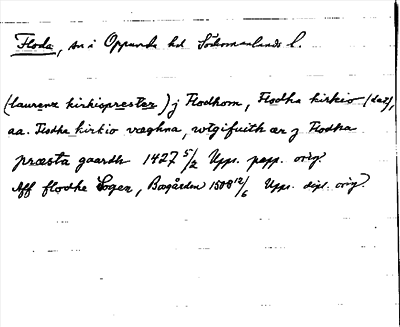 Floda, sn i Oppunda hd Södermanlands l.
(laurenz kirkioprester) j Flodhom, Flodha kirkio (dat),
aa. Flodha kirkio væghna, wtgifuith ær j Flodha
præsta gaardh 1427 5/2 Upps. papp. orig.
Aff flodhe Sogen, Bogården 1508 12/6 Upps. dipl. orig.